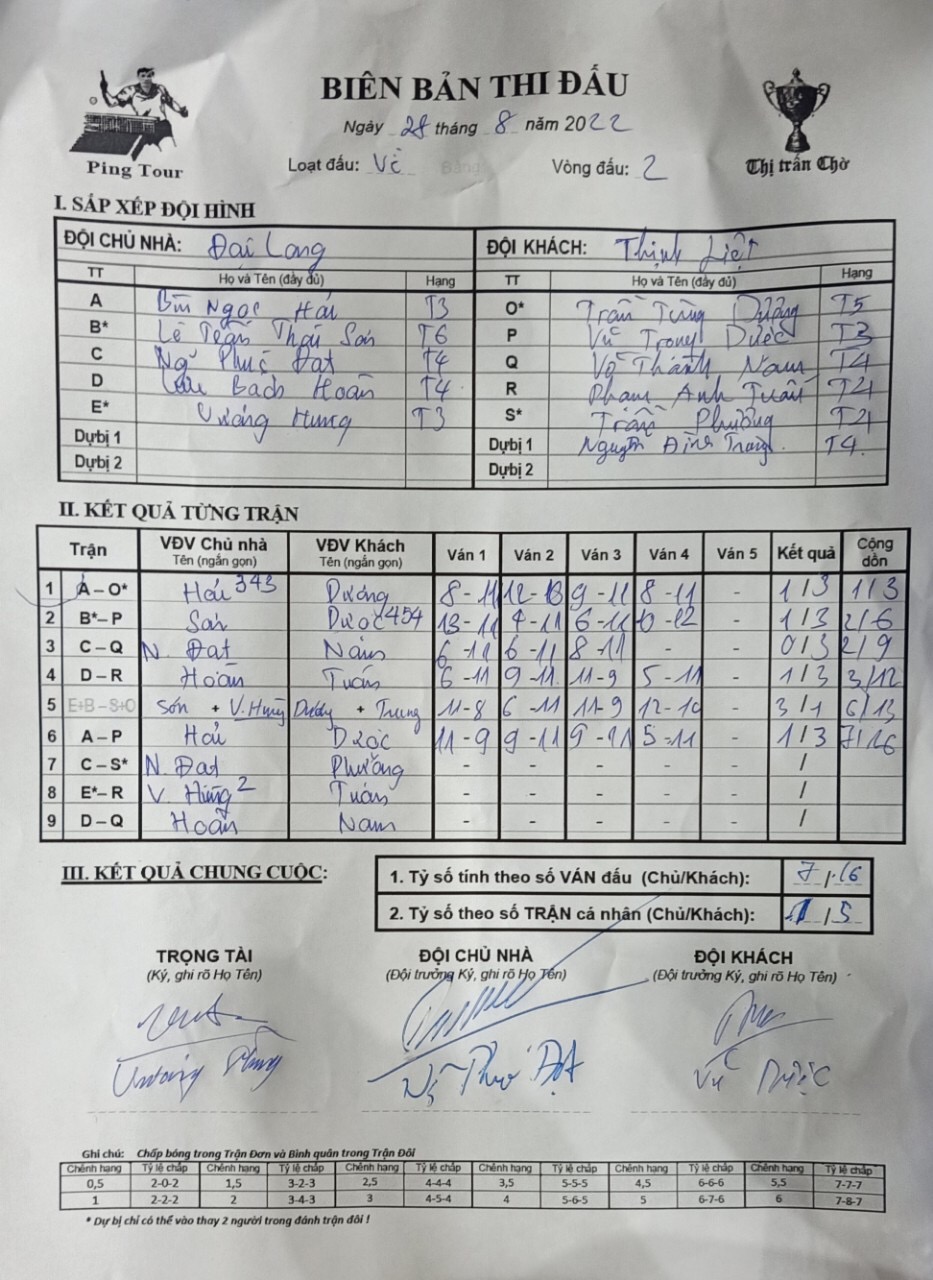 BIÊN BẢN THI ĐẤU
Ping Tour
Thị trấn Chờ
Ngày 28 tháng 8 năm 2022
Loạt đấu: Về Bảng Vòng đấu: 2
I. SẮP XẾP ĐỘI HÌNH
ĐỘI CHỦ NHÀ: Đại Long ĐỘI KHÁCH: Thịnh Liệt
TT Họ và Tên (đầy đủ) Hạng TT Họ và Tên (đầy đủ) Hạng
A Bùi Ngọc Hải T3 O* Trần Tùng Dương T5
B* Lê Thái Sơn T6 P Vũ Trọng Được T3
C Ngô Phúc Đạt T4 Q Võ Thành Nam T4
D Bạch Hoàn T4 R Phạm Anh Tuấn T4
E* Vương Hưng T3 S* Trần Phường T4
Dự bị 1 Dự bị 1 Nguyễn Đình Trung T4
Dự bị 2 Dự bị 2
II. KẾT QUẢ TỪNG TRẬN
Trận VĐV Chủ nhà Tên (ngắn gọn) VĐV Khách Tên (ngắn gọn) Ván 1 Ván 2 Ván 3 Ván 4 Ván 5 Kết quả Cộng dồn
1 A – O* Hải 343 Dương 8 - 11 12 - 13 9 - 11 8 - 11 - 1 / 3 1 / 3
2 B* – P Sơn Được 454 13 - 11 - 11 6 - 11 10 - 12 - 1 / 3 2 / 6
3 C – Q N. Đạt Nam 6 - 11 6 - 11 8 - 11 - - 0 / 3 2 / 9
4 D – R Hoàn Tuấn 6 - 11 9 - 11 11 - 9 5 - 11 - 1 / 3 3 / 12
5 E+B – S+O Sơn + V. Hưng Dương + Trung 11 - 8 6 - 11 11 - 9 12 - 10 - 3 / 1 6 / 13
6 A – P Hải Được 11 - 9 9 - 11 9 - 11 5 - 11 - 1 / 3 7 / 16
7 C – S* N. Đạt Phường - - - - - /
8 E* – R V. Hưng 2 Tuấn - - - - - /
9 D – Q Hoàn Nam - - - - - /
III. KẾT QUẢ CHUNG CUỘC:
1. Tỷ số tính theo số VÁN đấu (Chủ/Khách): 7 / 16
2. Tỷ số theo số TRẬN cá nhân (Chủ/Khách): 1 / 5
TRỌNG TÀI ĐỘI CHỦ NHÀ ĐỘI KHÁCH
(Ký, ghi rõ Họ Tên) (Đội trưởng Ký, ghi rõ Họ Tên) (Đội trưởng Ký, ghi rõ Họ Tên)
Đạt Vũ Được
Ghi chú: Chấp bóng trong Trận Đơn và Bình quân trong Trận Đôi
Chênh hạng Tỷ lệ chấp Chênh hạng Tỷ lệ chấp Chênh hạng Tỷ lệ chấp Chênh hạng Tỷ lệ chấp Chênh hạng Tỷ lệ chấp Chênh hạng Tỷ lệ chấp
0,5 2-0-2 1,5 3-2-3 2,5 4-4-4 3,5 5-5-5 4,5 6-6-6 5,5 7-7-7
1 2-2-2 2 3-4-3 3 4-5-4 4 5-6-5 5 6-7-6 6 7-8-7
* Dự bị chỉ có thể vào thay 2 người trong đánh trận đôi !